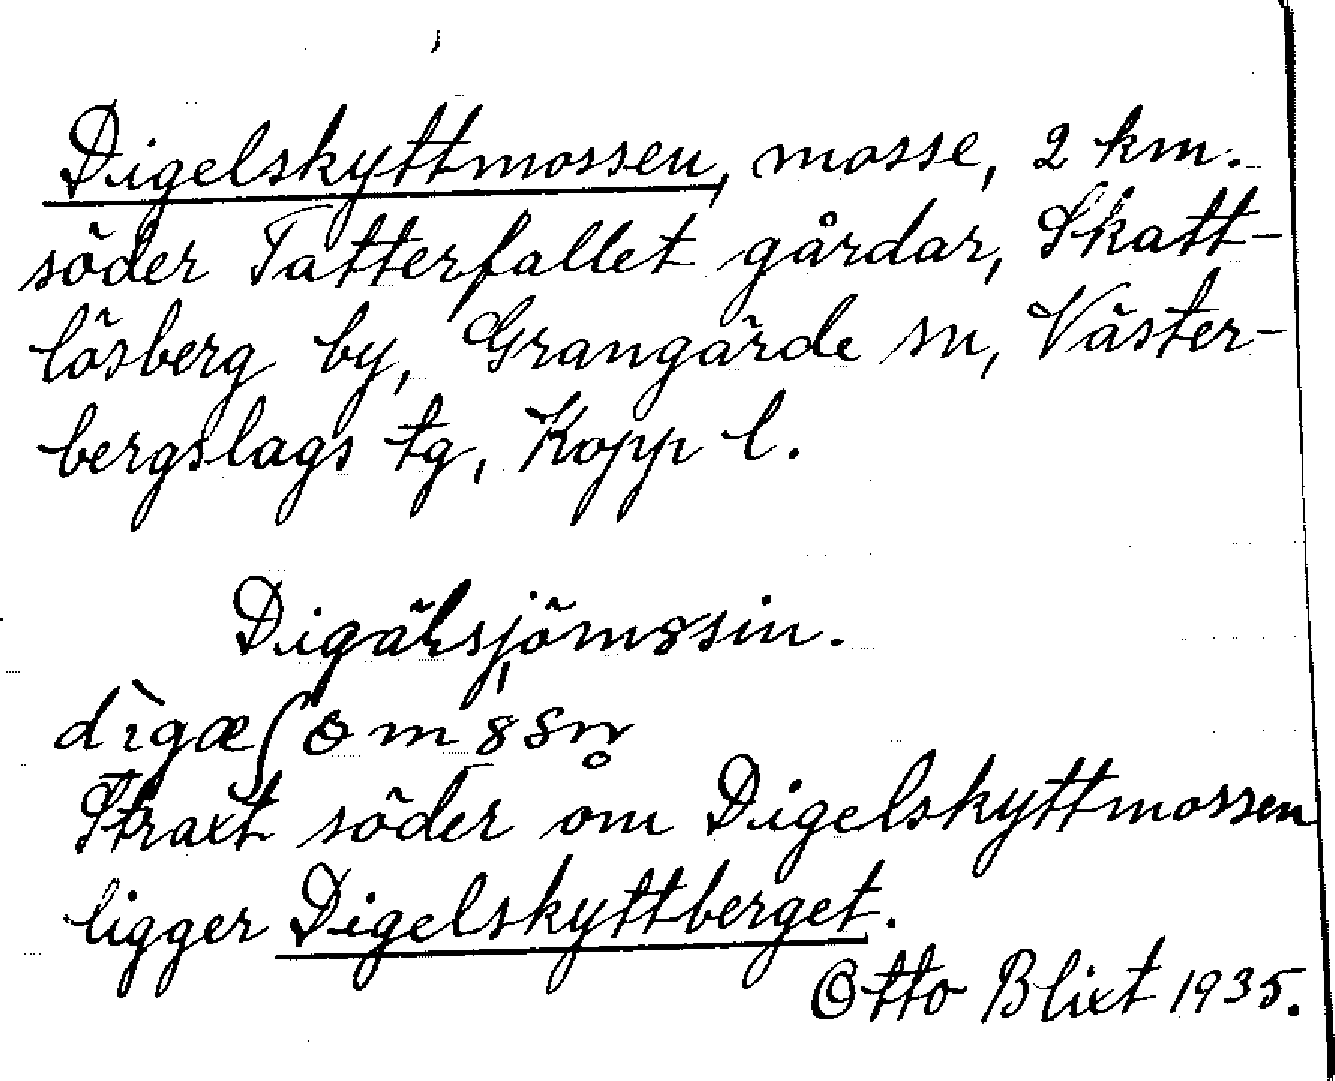 Digelskyttmossen, mosse, 2 km.
söder Tatterfallet gårdar, Skatt-
lösberg by, Grangärde sn, Väster-
bergslags tg, Kopp l.
Digälsjömssin.
Straxt söder om Digelskyttmossen
ligger Digelskyttberget.
Otto Blixt 1935.